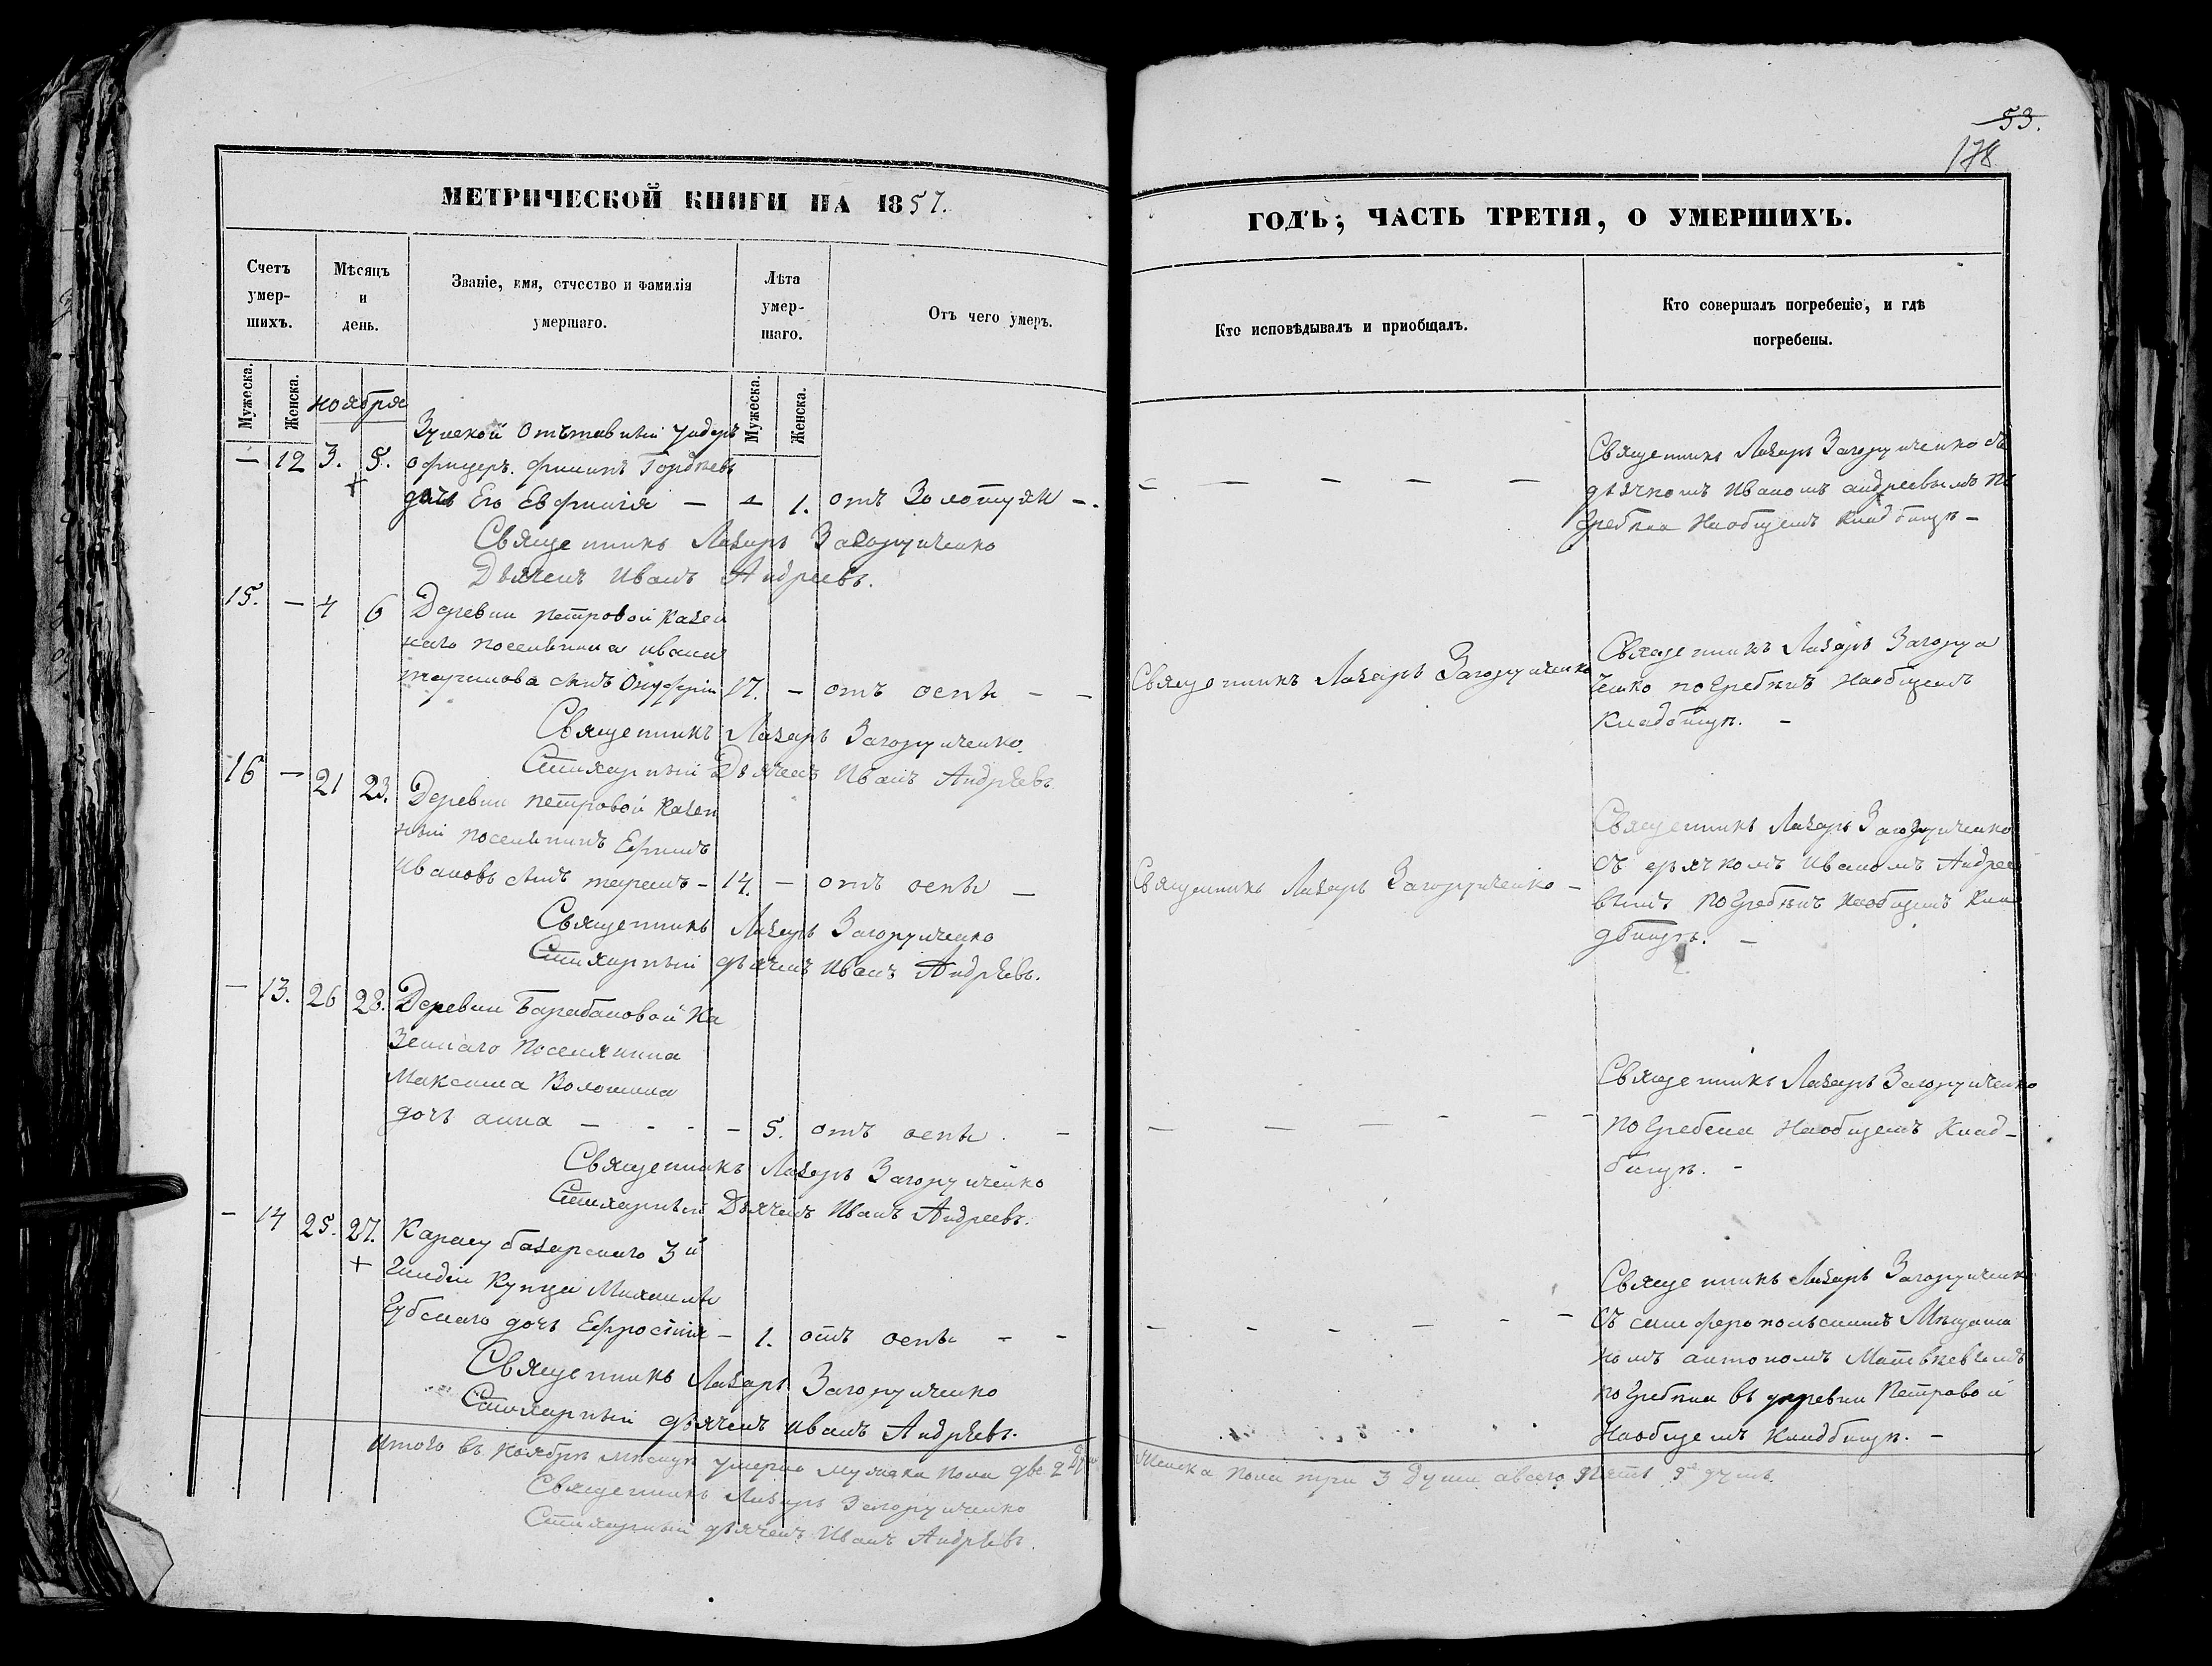 53.
178
МЕТРИЧЕСКОЙ КНИГИ НА 1857.
ГОДЪ; ЧАСТЬ ТРЕТІЯ, О УМЕРШИХЪ.
Счетъ умер-шихъ.
Мѣсяцъ и день.
Званіе, имя, отчество и фамилія умершаго.
Лѣта умер-шаго.
Отъ чего умеръ.
Кто исповѣдывалъ и приобщалъ.
Кто совершалъ погребеніе, и гдѣ погребены.
Мужеска.
Женска.
Мужеска.
Женска.
ноября
Зуйской Отътавный ундеръ
— 12 3. 5. офицеръ. Филипъ Гордѣевъ
дочь Его Евфимія — — 1. отъ Золотухи —
Священникъ Лазарь Загоруйченко
Дьячекъ Иванъ Андреевъ.
Священникъ Лазарь Загоруйченко съ
дьячкомъ Иваномъ андреевымъ по
гребена Наобщемъ Кладбищѣ —
15. — 4 6 Деревни петровой Казен
наго поселянина ивана
терешова сынъ Онуфрій 17. — отъ оспы — —
Священникъ Лазарь Загоруйченко.
Стихарный Дьячекъ Иванъ Андрѣевъ
Священникъ Лазарь Загоруйченко
Священникъ Лазарь Загоруй
ченко погребенъ Наобщемъ
Кладбищѣ. —
16 — 21 23. Деревни петровой Казен
ный поселянинъ Ефимъ
Ивановъ сынъ терешъ — 14. — отъ оспы —
Священникъ Лазарь Загоруйченко
Стихарный дьячекъ Иванъ Андрѣевъ.
Священникъ Лазарь Загоруйченко —
Священникъ Лазарь Загоруйченко
съ дьячкомъ Иваномъ Андрее
вымъ погребенъ Наобщемъ Кла
дбищѣ. —
— 13. 26 28. Деревни Барабановой Ка
Зеннаго Поселянина
Максима Волошина
дочь анна — — — — 5. отъ оспы. —
Священникъ Лазарь Загоруйченко
Стихарный Дьячекъ Иванъ Андреевъ.
Священникъ Лазарь Загоруйченко
погребена Наобщемъ Клад-
бищѣ. —
— 14 25. 27. Карасу базарскаго 3й
Гилдіи Купца Михаила
Губскаго дочь Ефросінія — 1. отъ оспы — —
Священникъ Лазарь Загоруйченко
Стихарный дьячекъ иванъ Андрѣевъ.
Священникъ Лазарь Загоруйченк
съ симферопольскимъ Мѣщани
номъ антономъ Матвѣевымъ
погребена въ деревни Петровой
Наобщемъ Кладбищѣ. —
Итого въ Ноябрѣ мѣсяцѣ умерло мужска пола две 2 Души
женска пола три 3 Души авсего пять 5 душъ.
Священникъ Лазарь Загоруйченко
Стихарный дьячекъ Иванъ Андрѣевъ.